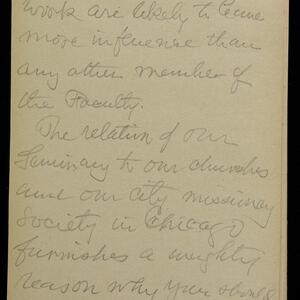 work are likely to
more influence than
any other member of
the Faculty.
The relation of our
Seminary to our churches
and our city missionary
Society in Chicago
furnishes a weighty
reason why your